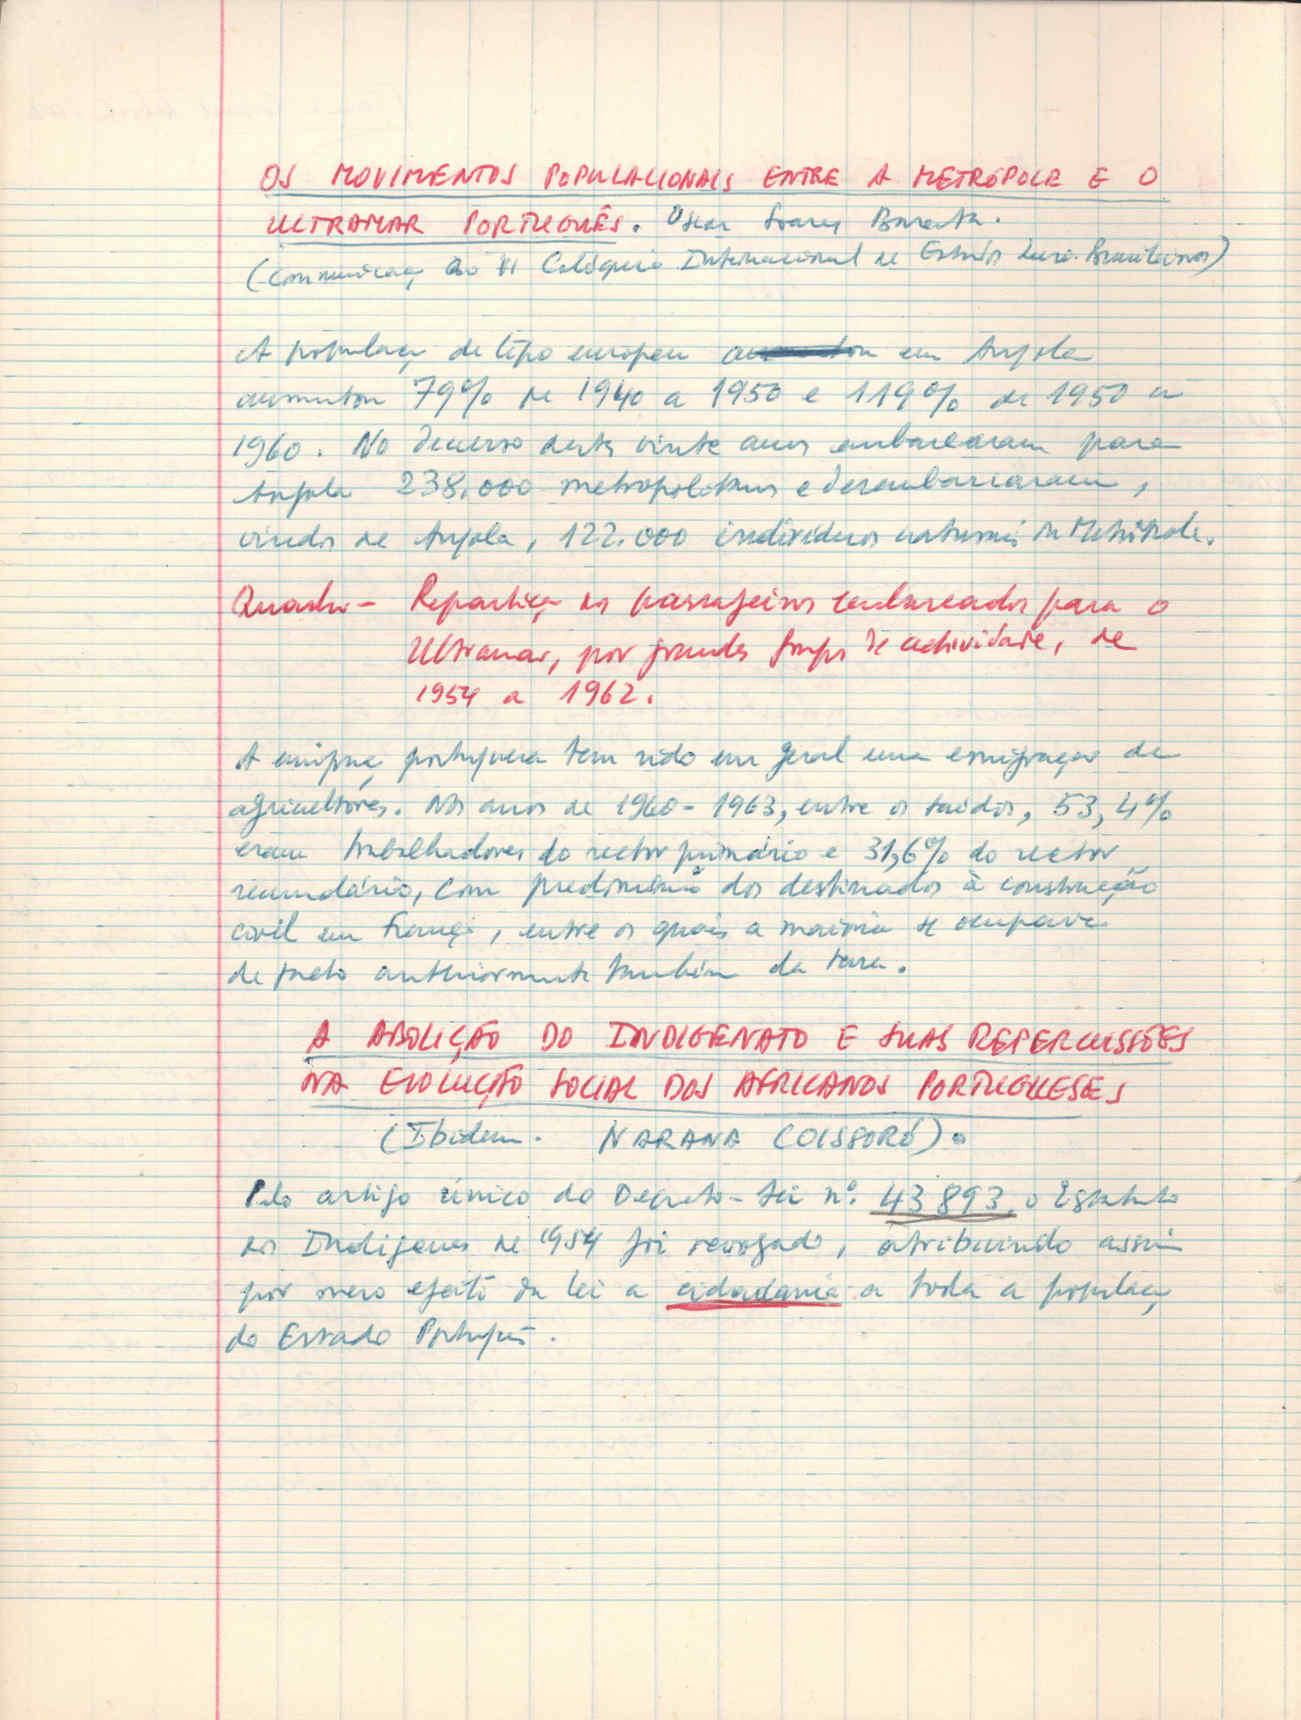 OS MOVIMENTOS POPULACIONAIS ENTRE A METRÓPOLE E O
ULTRAMAR PORTUGUÊS. Oscar Soares Barata.
(Comunicaç ao VI Colóquio Internacional de Estudos Luso-Brasileiros)
A populaç de tipo europeu em Angola
aumentou 79% de 1940 a 1950 e 119% de 1950 a
1960. No decurso destes vinte anos embarcaram para
Angola 238.000 metropolitanos e desembarcaram,
vindos de Angola, 122.000 indivíduos naturais da Metrópole.
Quadro - Repartiç dos passageiros embarcados para o
Ultramar, por grandes grupos de actividade, de
1954 a 1962.
A emigraç portuguesa tem sido em geral uma emigração de
agricultores. Nos anos de 1960-1963, entre os saídos, 53,4%
eram trabalhadores do sector primário e 31,6% do sector
secundário, com predomínio dos destinados à construção
civil em França, entre os quais a maioria se ocupava
de facto anteriormente também da terra.
A ABOLIÇÃO DO INDIGENATO E SUAS REPERCUSSÕES
NA EVOLUÇÃO SOCIAL DOS AFRICANOS PORTUGUESES
(Ibidem. NARANA COISSORÓ).
Pelo artigo único do Decreto-Lei nº. 43 893, o Estatuto
dos Indígenas de 1954 foi revogado, atribuindo assim
por mero efeito da lei a cidadania a toda a populaç
do Estado Português.